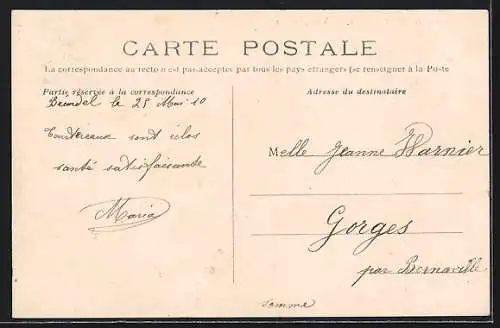 CARTE POSTALE
La correspondance au recto n'est pas acceptée par tous les pays étrangers (se renseigner à la Poste
Partie réservée à la correspondance
le 25 Mai 10
sont éclos
santé satisfaisante
Maria
Adresse du destinataire
Melle Jeanne Warnier
Gorges
par Bernaville
Somme